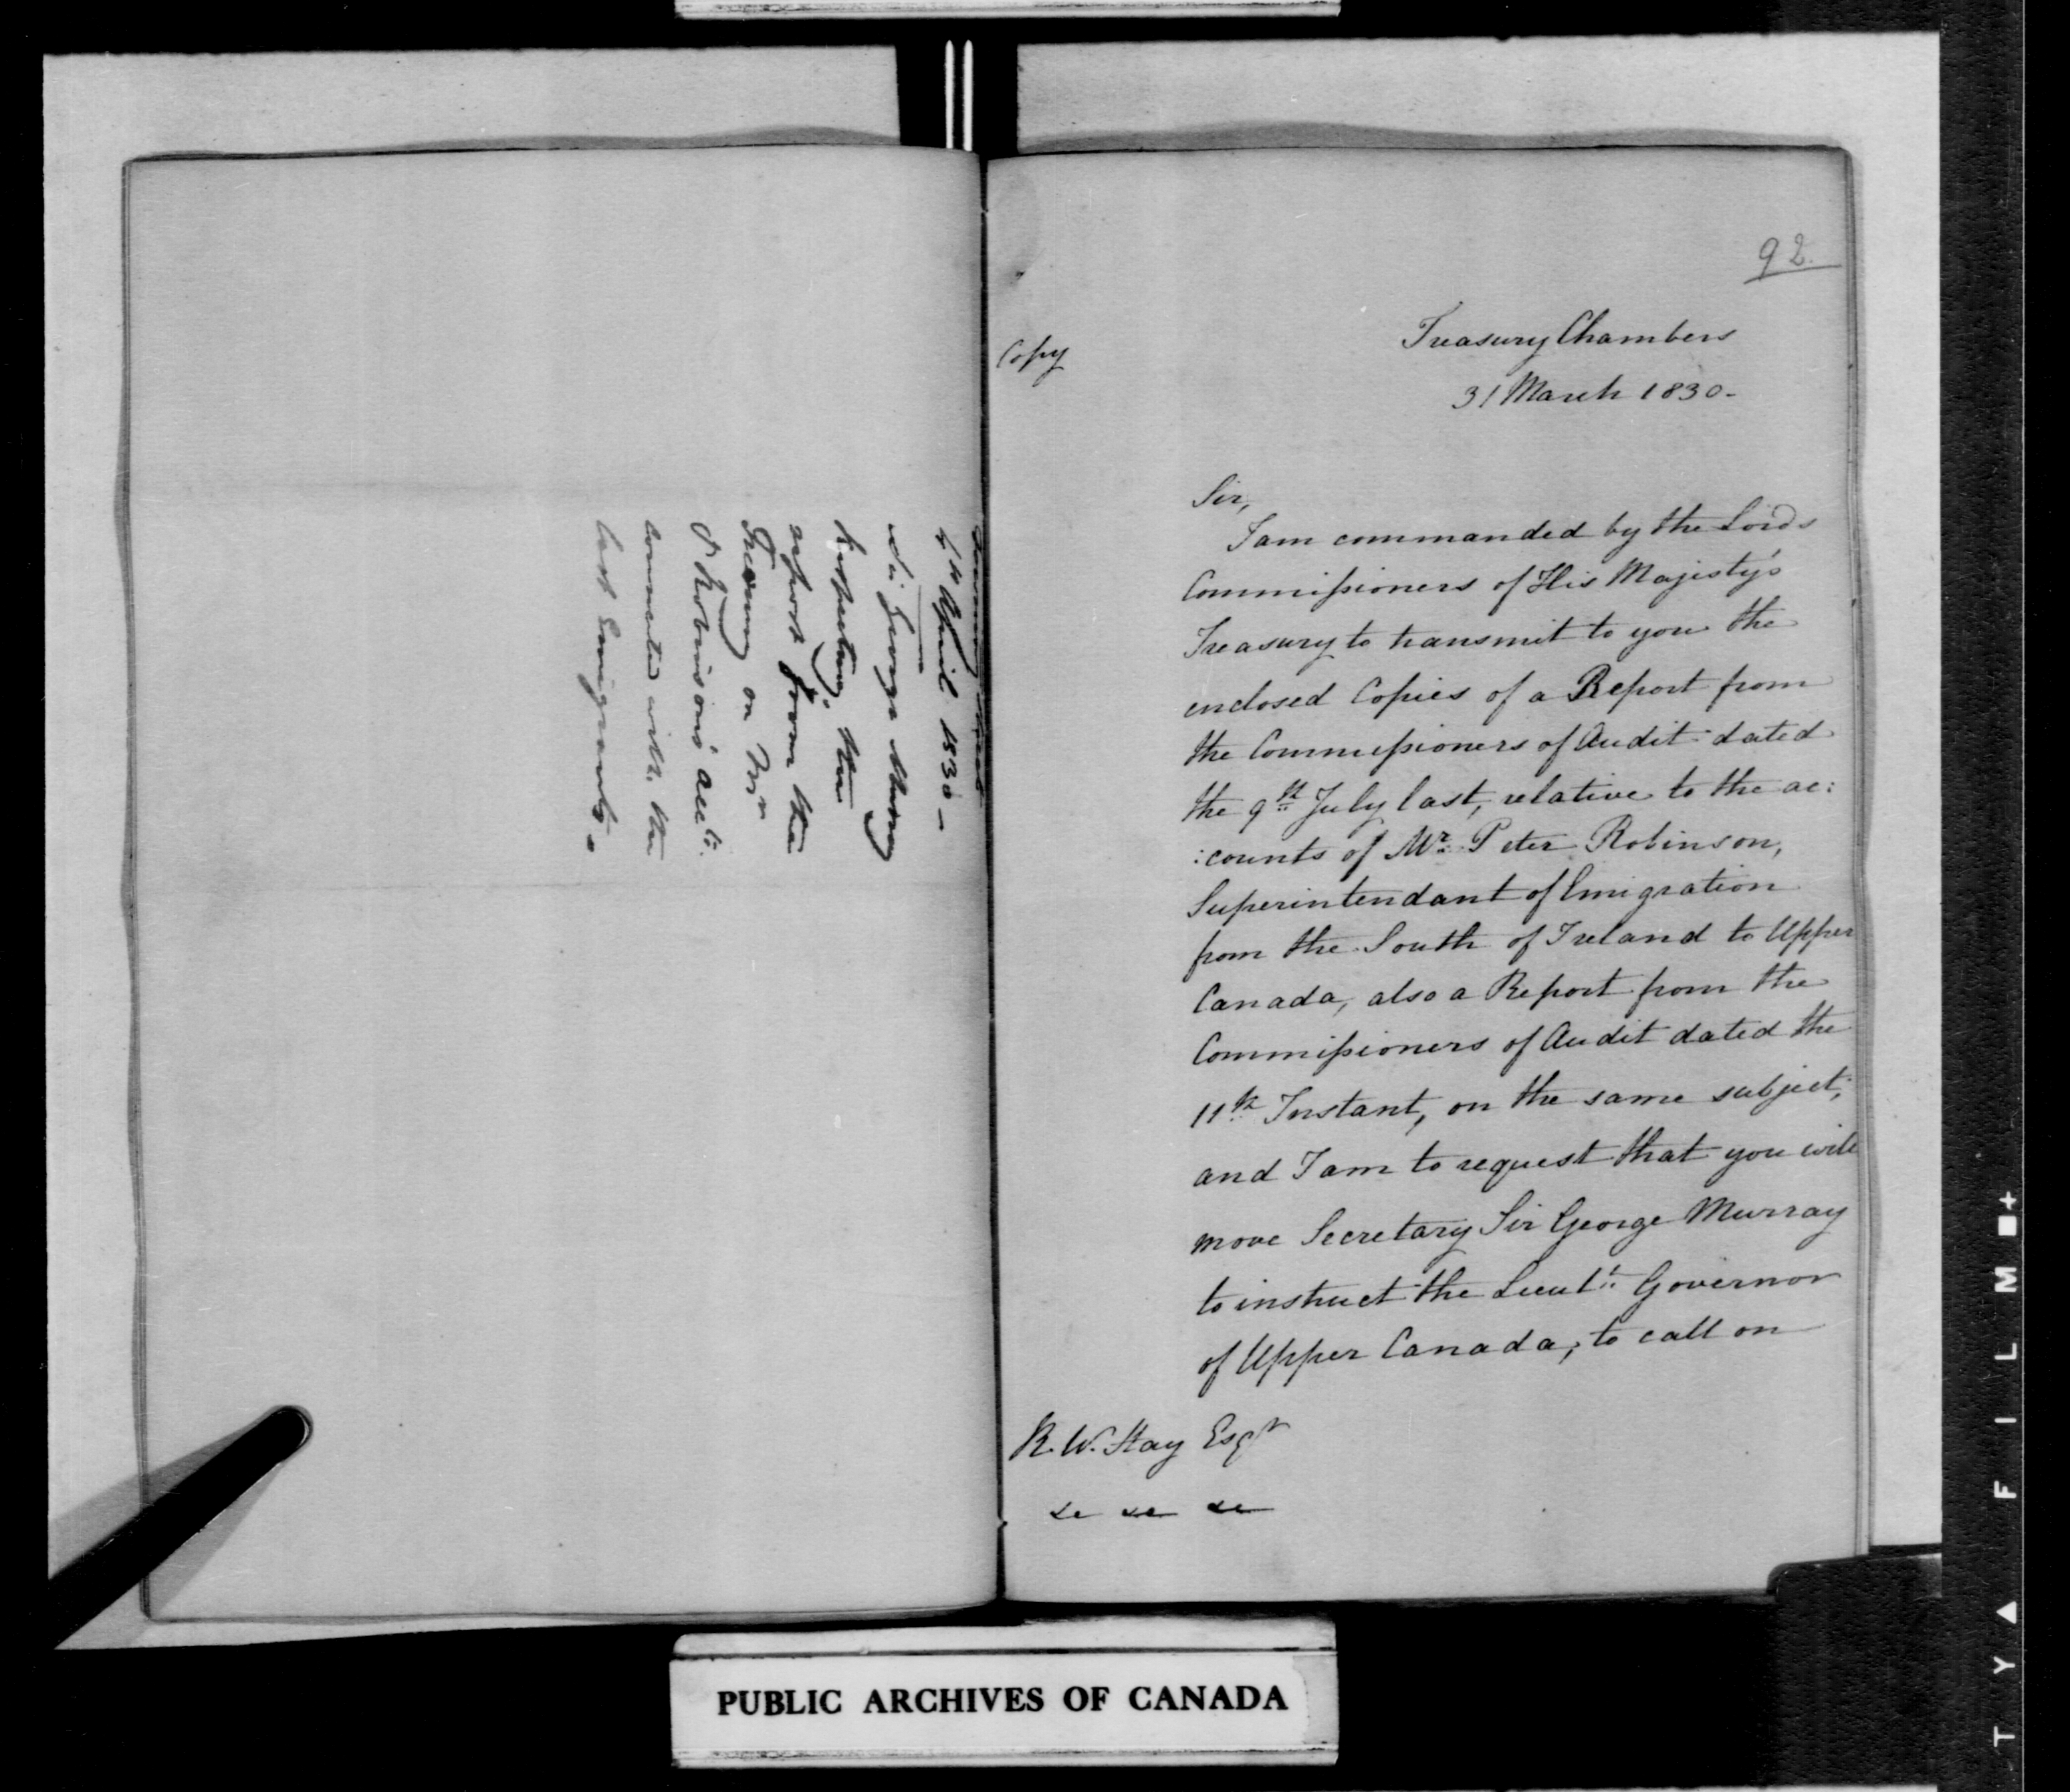 4th April 1830 –
Sir George Murray
respecting the
report from the
Treasury on Mr
P Robinsons' acc.ts
connected with the
last Emigrants.
92.
Copy
Treasury Chambers
31 March 1830 -
Sir,
I am commanded by the Lords
Commissioners of His Majesty's
Treasury to transmit to you the
enclosed Copies of a Report from
the Commissioners of Audit dated
the 9th July last, relative to the ac:
:counts of Mr. Peter Robinson,
Superintendant of Emigration
from the South of Ireland to Upper
Canada, also a Report from the
Commissioners of Audit dated the
11th Instant, on the same subject;
and I am to request that you will
move Secretary Sir George Murray
to instruct the Lieut.t Governor
of Upper Canada, to call on
R. W. Hay Esqr
&c &c &c
PUBLIC ARCHIVES OF CANADA
T Y ▲ F I L M ■+